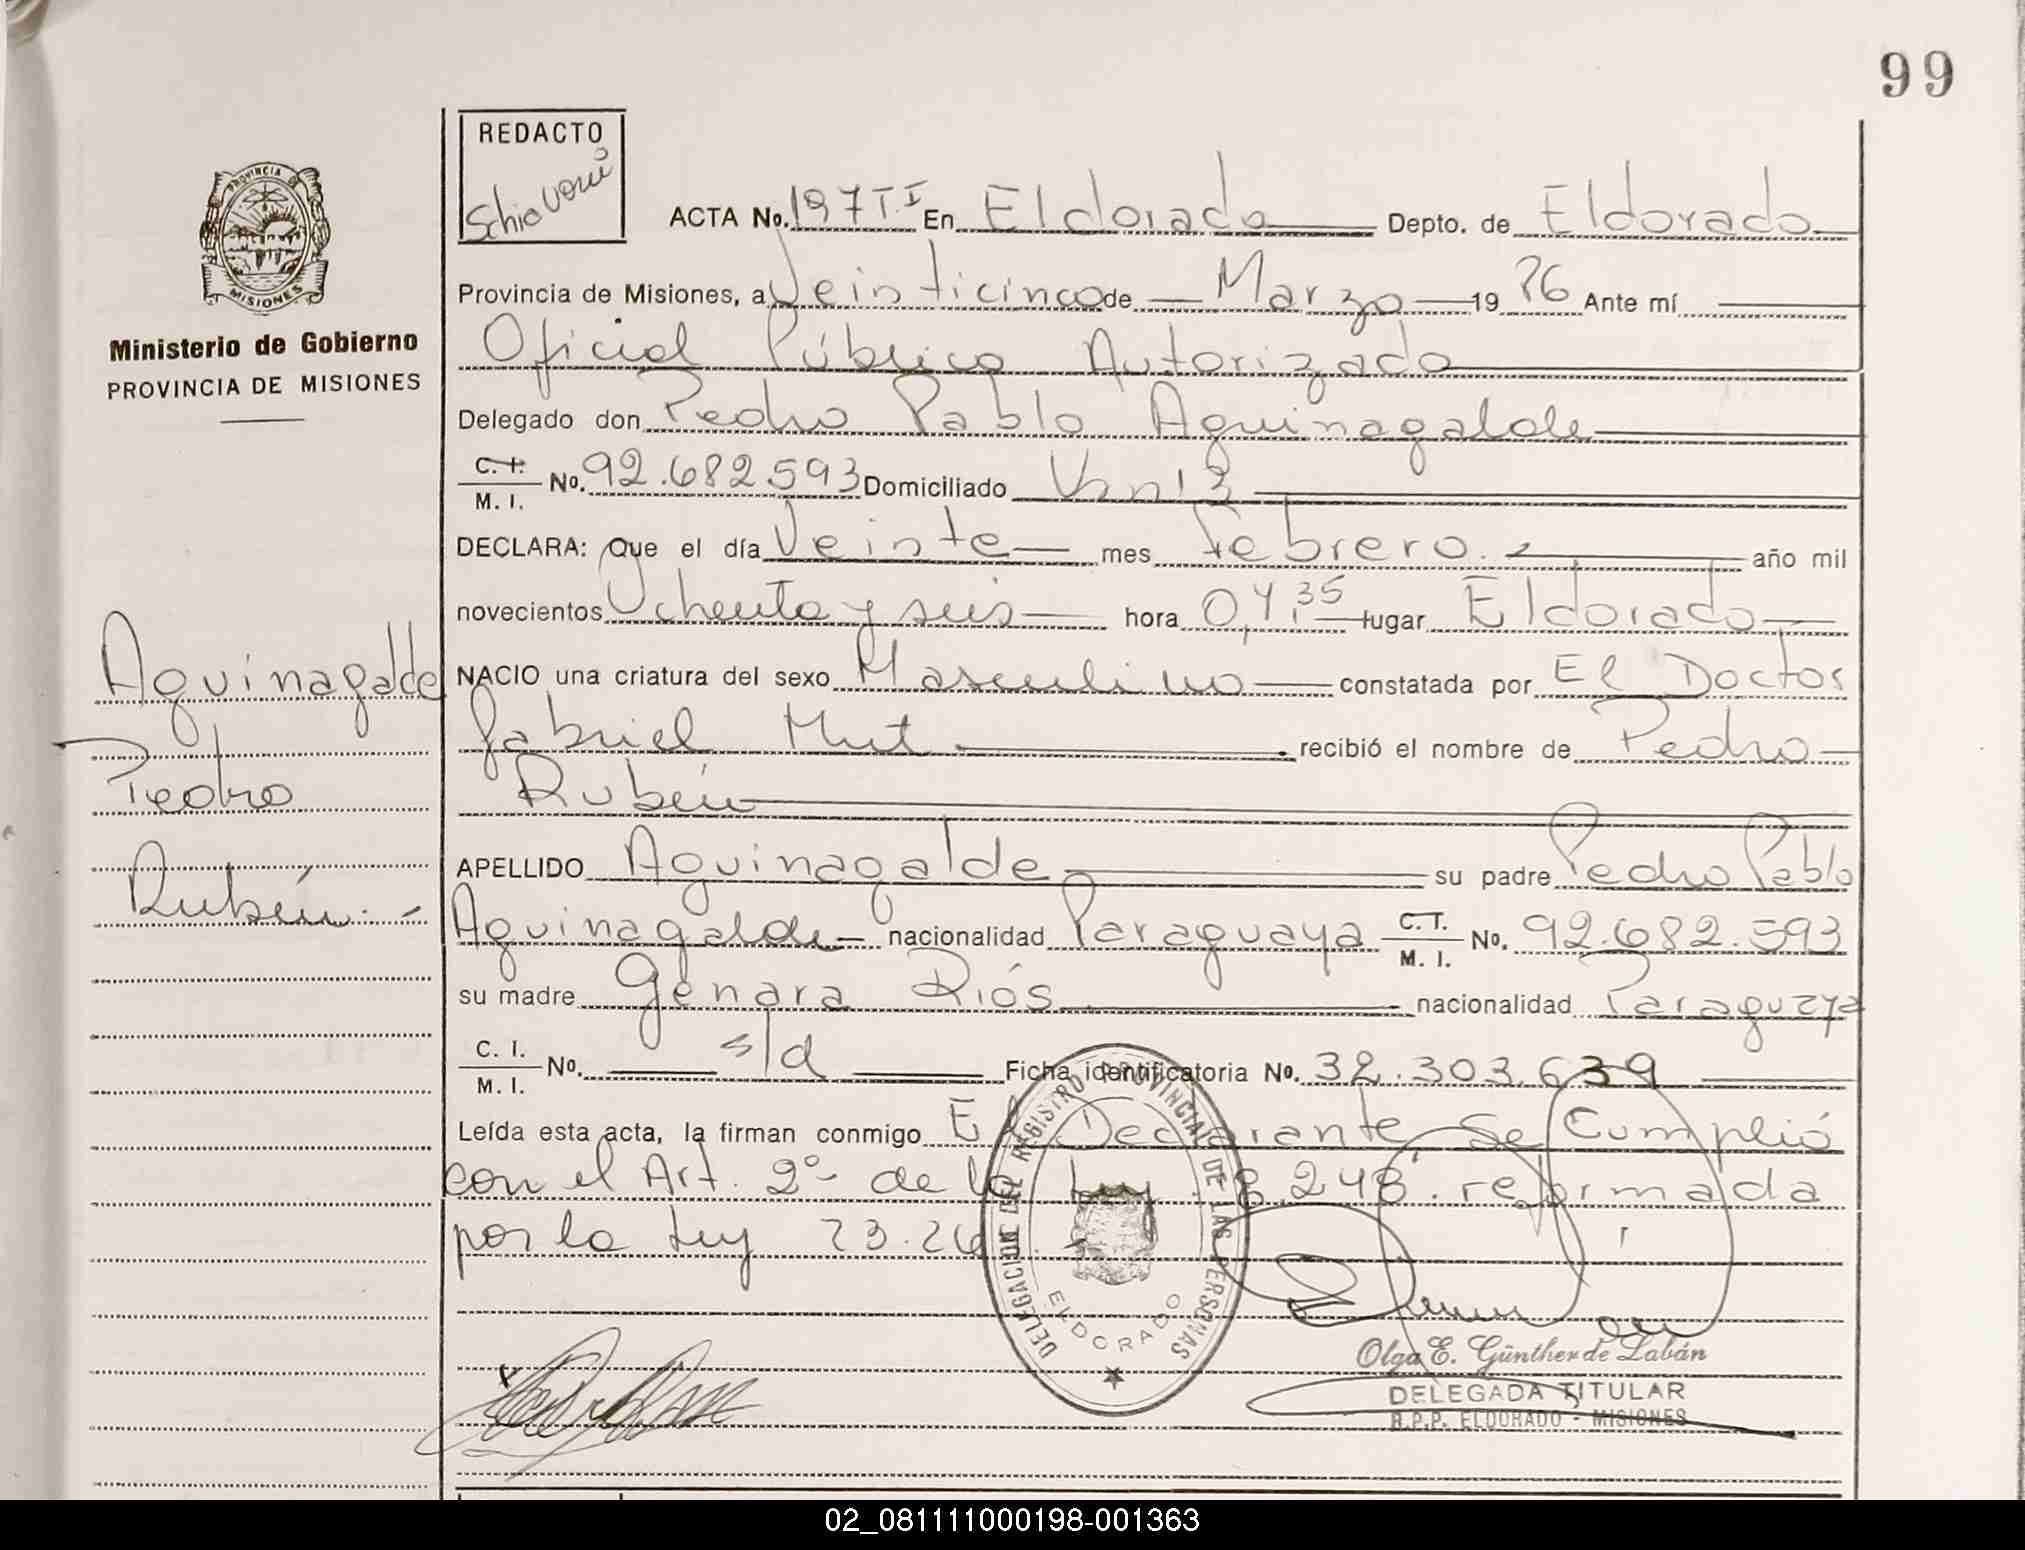 99
REDACTO
Schiavoni
PROVINCIA DE
MISIONES
Ministerio de Gobierno
PROVINCIA DE MISIONES
ACTA No. 197 T.I En Eldorado Depto. de Eldorado
Provincia de Misiones, a Veinticinco de Marzo 19 86 Ante mí
Oficial Público Autorizado
Delegado don Pedro Pablo Aguinagalde
C. I. M. I. No. 92.682.593 Domiciliado
DECLARA: Que el día Veinte mes Febrero. año mil
novecientos Ochenta y seis hora 04,35 lugar Eldorado
NACIO una criatura del sexo Masculino constatada por El Doctor
Gabriel Mut recibió el nombre de Pedro
Rubén
APELLIDO Aguinagalde su padre Pedro Pablo
Aguinagalde nacionalidad Paraguaya C.T. M. I. No. 92.682.593
su madre Genara Riós nacionalidad Paraguaya
C. I. M. I. No. s/d Ficha identificatoria No. 32.303.639
Leída esta acta, la firman conmigo El Declarante Se Cumplió
con el Art. 2º de la Ley 8.248. reformada
por la Ley 23.26
Aguinagalde
Pedro
Rubén.-
DELEGACION DEL REGISTRO PROVINCIAL DE LAS PERSONAS
ELDORADO
Olga E. Günther de Labán
DELEGADA TITULAR
R.P.P. ELDORADO - MISIONES
02_081111000198-001363